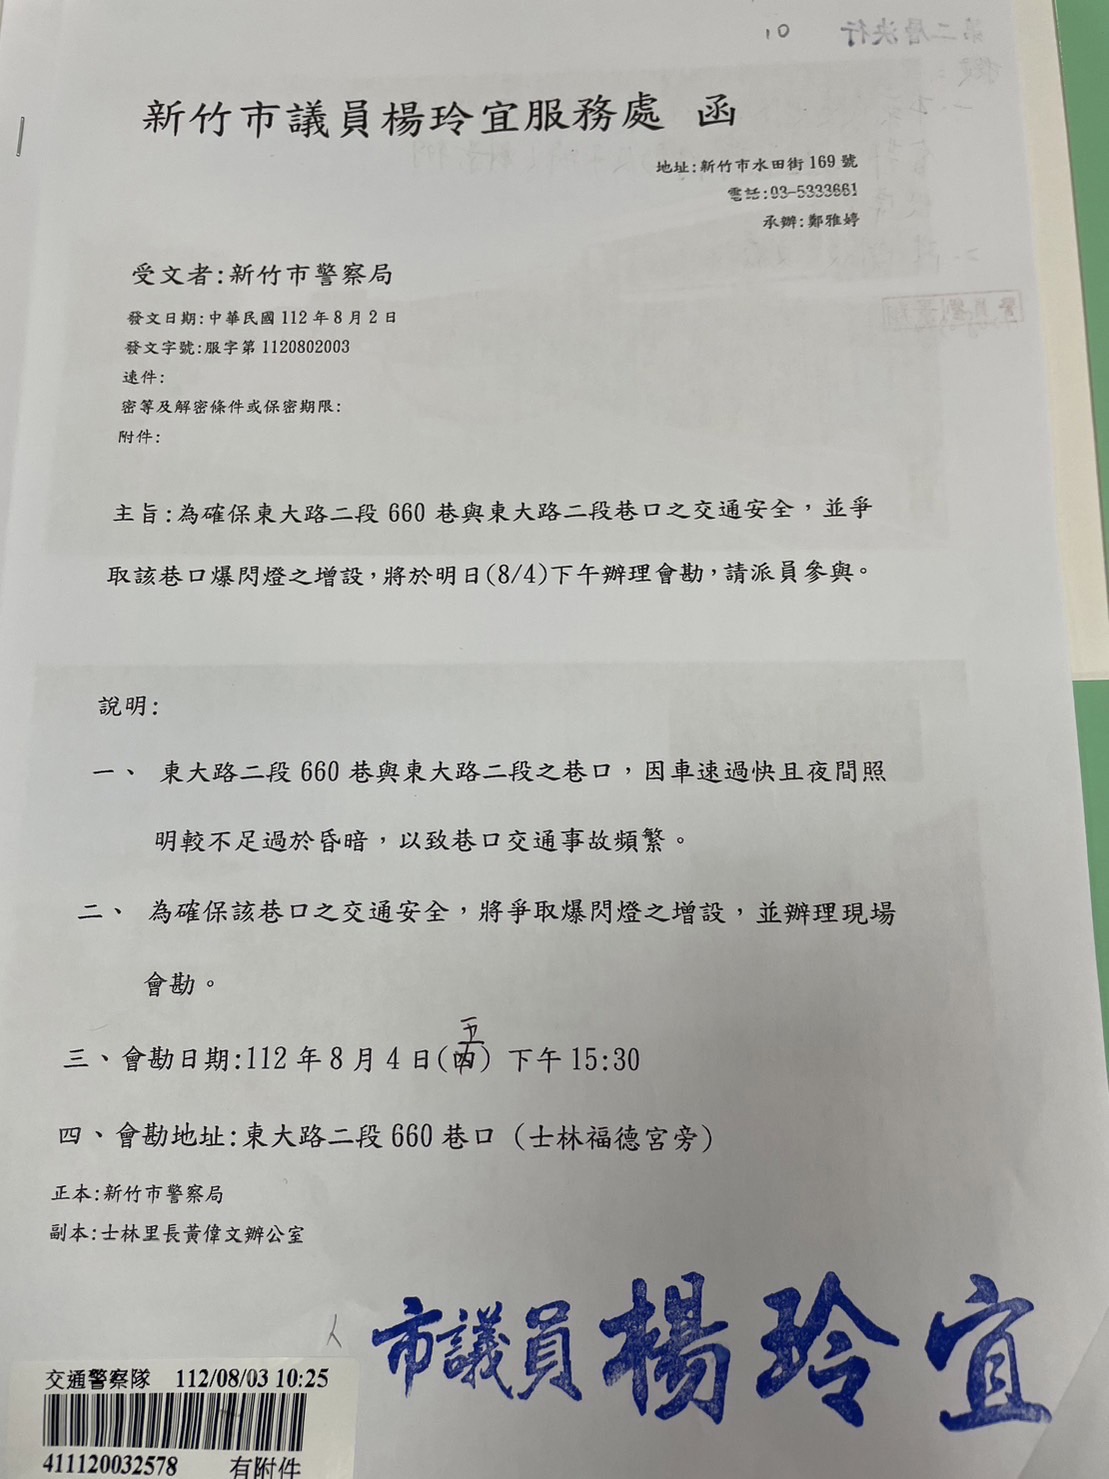 第二層決行
新竹市議員楊玲宜服務處 函
地址:新竹市水田街 169 號
電話:03-5333661
承辦:鄭雅婷
受文者:新竹市警察局
發文日期:中華民國 112 年 8 月 2 日
發文字號:服字第 1120802003
速件:
密等及解密條件或保密期限:
附件:
主旨:為確保東大路二段 660 巷與東大路二段巷口之交通安全，並爭
取該巷口爆閃燈之增設，將於明日(8/4)下午辦理會勘，請派員參與。
說明:
一、 東大路二段 660 巷與東大路二段之巷口，因車速過快且夜間照
明較不足過於昏暗，以致巷口交通事故頻繁。
二、 為確保該巷口之交通安全，將爭取爆閃燈之增設，並辦理現場
會勘。
五
三、會勘日期:112 年 8 月 4 日(四) 下午 15:30
四、會勘地址:東大路二段 660 巷口（士林福德宮旁）
正本:新竹市警察局
副本:士林里長黃偉文辦公室
市議員楊玲宜
交通警察隊 112/08/03 10:25
411120032578 有附件